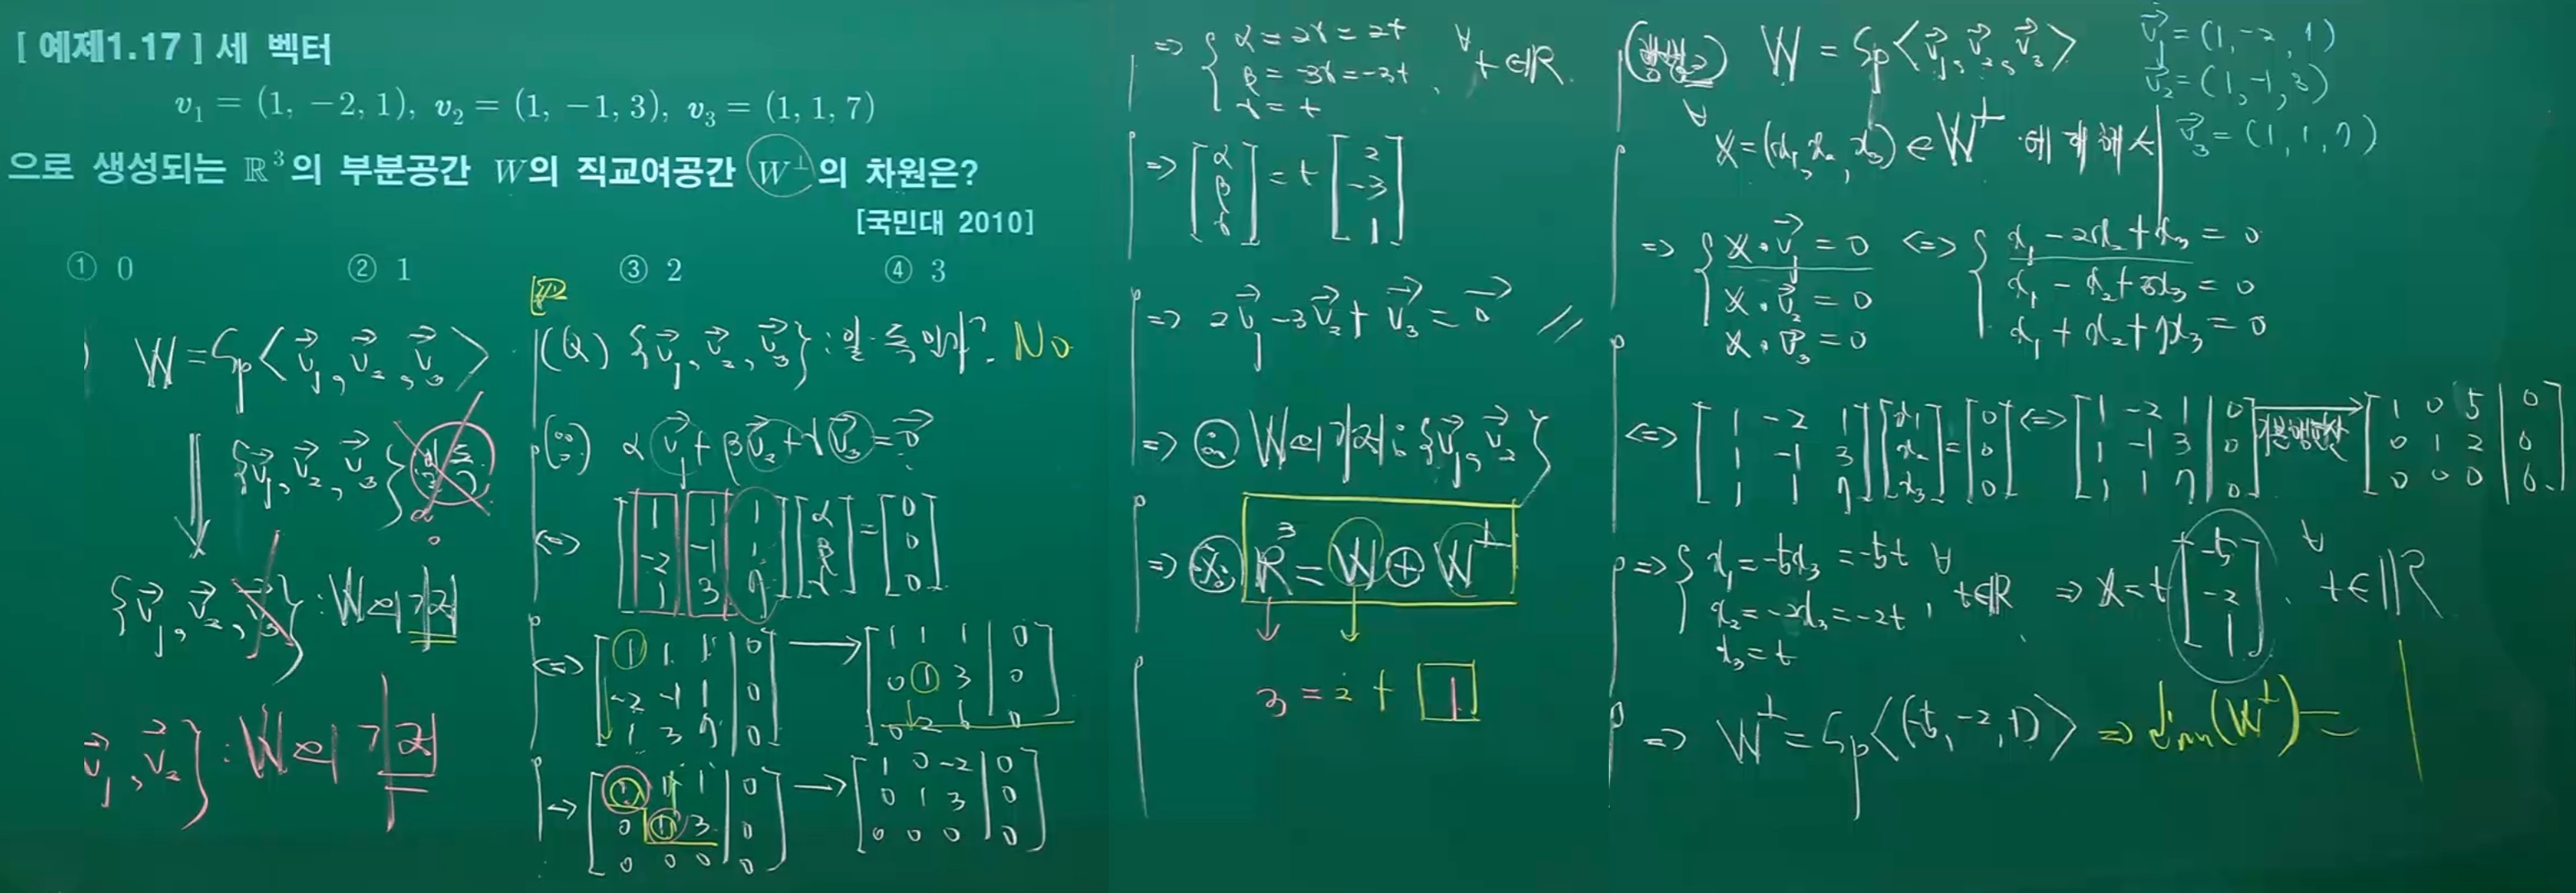 [ 예제1.17 ] 세 벡터
v₁ = (1, −2, 1), v₂ = (1, −1, 3), v₃ = (1, 1, 7)
으로 생성되는 ℝ³의 부분공간 W의 직교여공간 W^⊥의 차원은?
[국민대 2010]
① 0 ② 1 ③ 2 ④ 3
W = Sp<v₁, v₂, v₃>
{v₁, v₂, v₃}
{v₁, v₂, v₃} : W의 기저
v₁, v₂} : W의 기저
(Q) {v₁, v₂, v₃} : 일·독인가? No
(∵) αv₁ + βv₂ + γv₃ = 0
<=> [1 1 1; -2 -1 1; 1 3 7][α; β; γ] = [0; 0; 0]
<=> [1 1 1 | 0; -2 -1 1 | 0; 1 3 7 | 0] → [1 1 1 | 0; 0 1 3 | 0; 0 2 6 | 0]
→ [1 1 1 | 0; 0 1 3 | 0; 0 0 0 | 0] → [1 0 -2 | 0; 0 1 3 | 0; 0 0 0 | 0]
=> { α = 2γ = 2t
β = -3γ = -3t, ∀t∈ℝ.
γ = t
=> [α; β; γ] = t[2; -3; 1]
=> 2v₁ - 3v₂ + v₃ = 0 //
=> ∴ W의 기저 : {v₁, v₂}
=> ※ ℝ³ = W ⊕ W^⊥
3 = 2 + 1
W = Sp<v₁, v₂, v₃>
v₁ = (1, -2, 1)
v₂ = (1, -1, 3)
v₃ = (1, 1, 7)
∀x = (x₁, x₂, x₃) ∈ W^⊥ 에 대해서
=> { x·v₁ = 0 <=> { x₁ - 2x₂ + x₃ = 0
x·v₂ = 0 x₁ - x₂ + 3x₃ = 0
x·v₃ = 0 x₁ + x₂ + 7x₃ = 0
<=> [1 -2 1; 1 -1 3; 1 1 7][x₁; x₂; x₃] = [0; 0; 0] <=> [1 -2 1 | 0; 1 -1 3 | 0; 1 1 7 | 0] 기본행연산 → [1 0 5 | 0; 0 1 2 | 0; 0 0 0 | 0]
=> { x₁ = -5x₃ = -5t ∀
x₂ = -2x₃ = -2t, t∈ℝ => x = t[-5; -2; 1], ∀t∈ℝ
x₃ = t
=> W^⊥ = Sp<(-5, -2, 1)> => dim(W^⊥) = 1